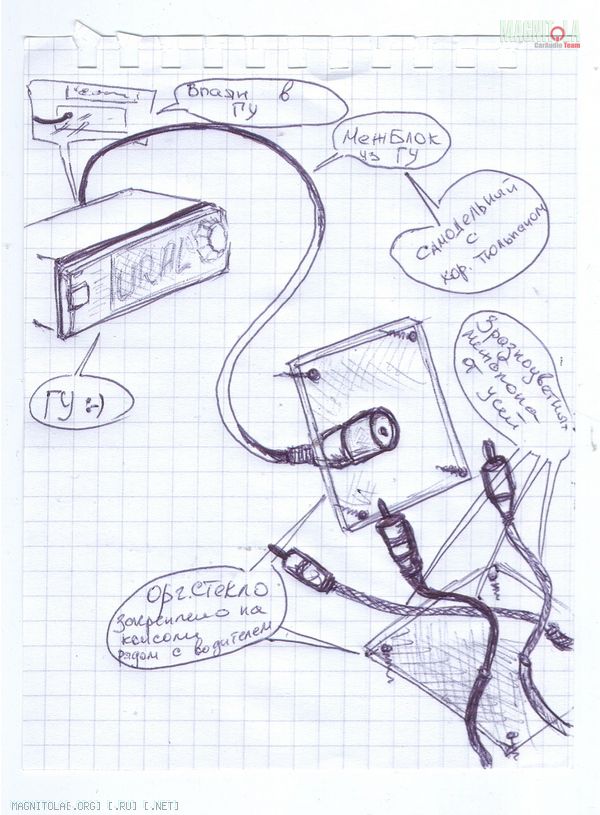 MAGNITOLA
CarAudio Team
Впаян в
ГУ
Межблок
из ГУ
Самодельный
с
кор. тюльпаном
URAL
ГУ :-)
3 разноцветных
от усей
Орг.стекло
закреплено на
рядом с водителем
MAGNITOLAE.ORG] [.RU] [.NET]